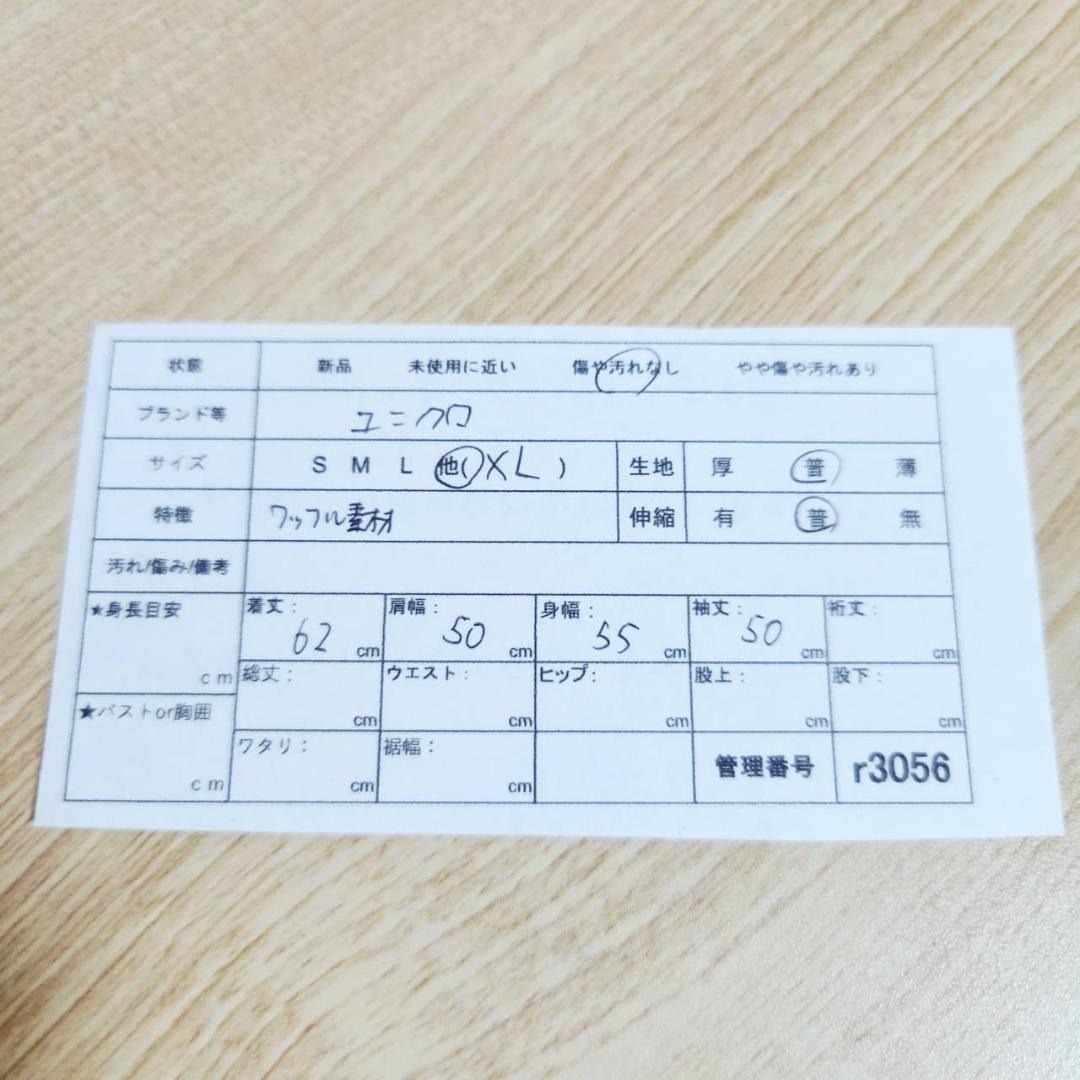 状態 新品 未使用に近い 傷や汚れなし やや傷や汚れあり
ブランド等 ユニクロ
サイズ S M L 他( XL ) 生地 厚 普 薄
特徴 ワッフル素材 伸縮 有 普 無
汚れ/傷み/備考
★身長目安 cm
着丈: 62 cm 肩幅: 50 cm 身幅: 55 cm 袖丈: 50 cm 裄丈: cm
総丈: cm ウエスト: cm ヒップ: cm 股上: cm 股下: cm
★バストor胸囲 cm
ワタリ: cm 裾幅: cm 管理番号 r3056